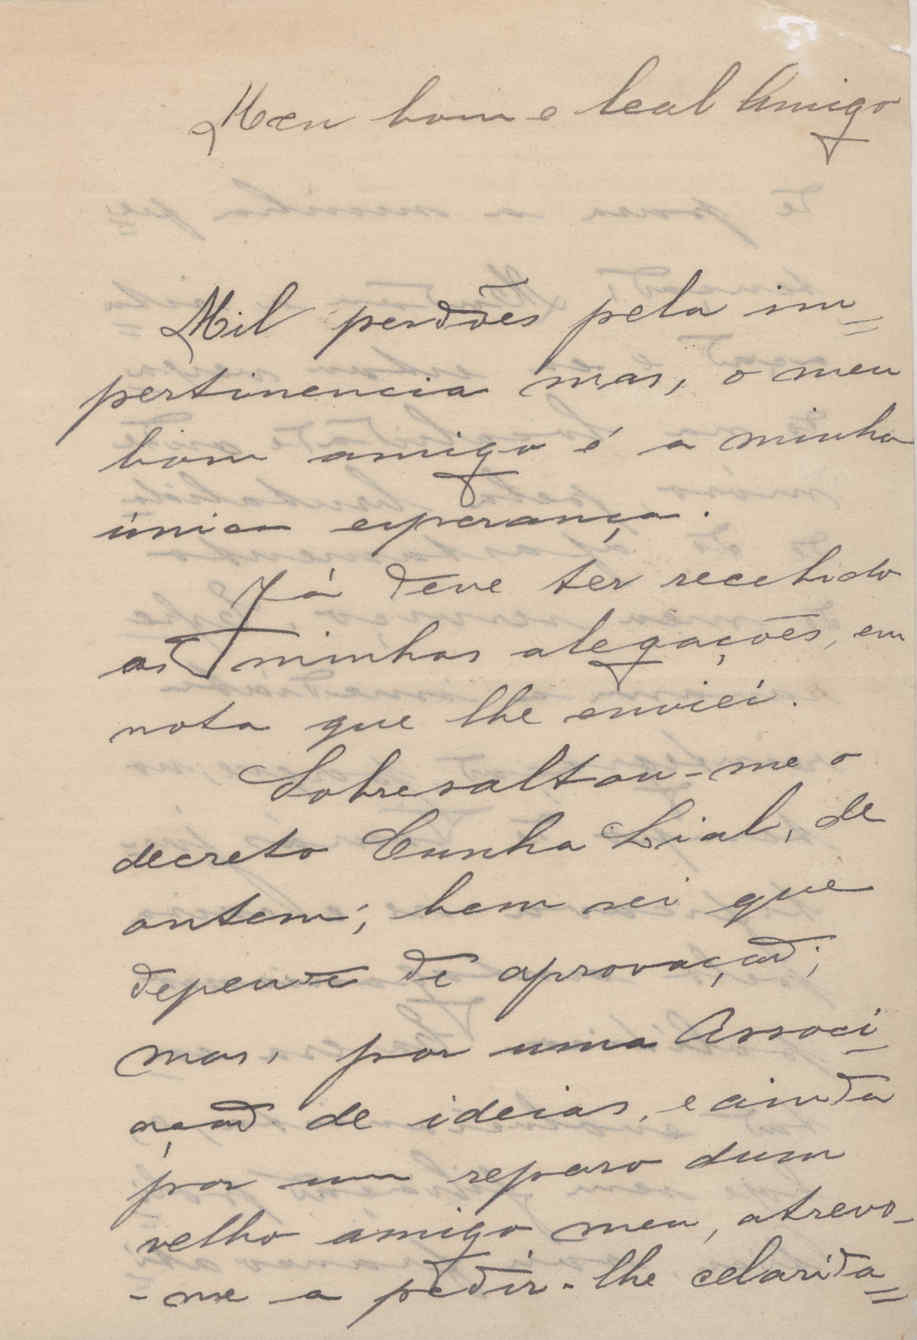 Meu bom e leal Amigo
Mil perdões pela im=
pertinencia mas, o meu
bom amigo é a minha
única esperança.
Já deve ter recebido
as minhas alegações, em
nota que lhe enviei.
Sobresaltou-me o
decreto Cunha Lial, de
ontem; bem sei que
depende de aprovação;
mas, por uma Associ=
ação de ideias, e ainda
por um reparo dum
velho amigo meu, atrevo-
-me a pedir-lhe celarida=